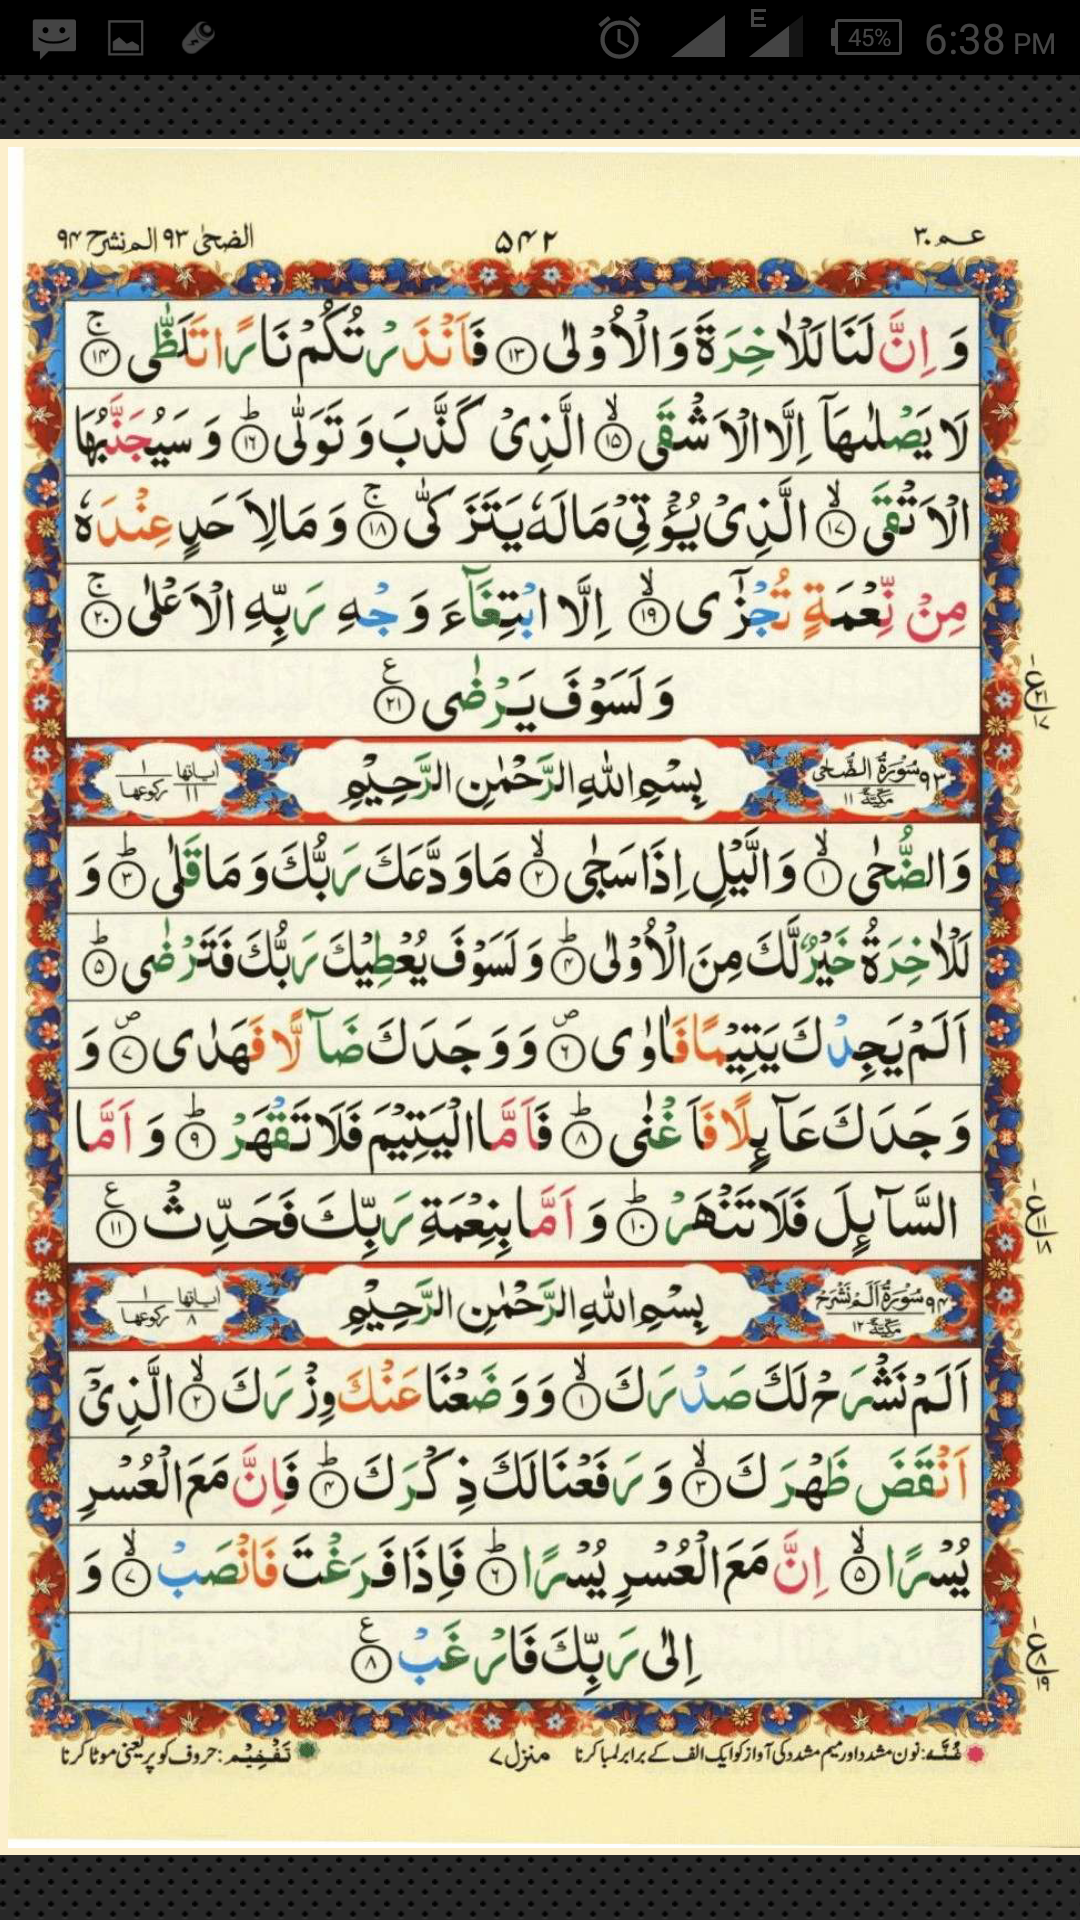 6:38 PM
45%
E
عـم ٣٠
۵۴۲
الضحٰی ۹۳ الم نشرح ۹۴
وَ اِنَّ لَنَا لَلْاٰخِرَةَ وَ الْاُوْلٰى ۱۳ فَاَنْذَرْتُكُمْ نَارًا تَلَظّٰى ۚ ۱۴
لَا يَصْلٰىهَاۤ اِلَّا الْاَشْقَى ۙ ۱۵ الَّذِىْ كَذَّبَ وَ تَوَلّٰى ؕ ۱۶ وَ سَيُجَنَّبُهَا
الْاَتْقَى ۙ ۱۷ الَّذِىْ يُؤْتِىْ مَالَهٗ يَتَزَكّٰى ۚ ۱۸ وَ مَا لِاَحَدٍ عِنْدَهٗ
مِنْ نِّعْمَةٍ تُجْزٰٓى ۙ ۱۹ اِلَّا ابْتِغَآءَ وَجْهِ رَبِّهِ الْاَعْلٰى ۚ ۲۰
وَ لَسَوْفَ يَرْضٰى ۲۱ ع
ع ۲۱ ۱۷
۹۳ سُوْرَةُ الضُّحٰى مَكِّيَّةٌ ۱۱
بِسْمِ اللهِ الرَّحْمٰنِ الرَّحِيْمِ
اٰياتها ۱۱ ركوعها ۱
وَالضُّحٰى ۙ ۱ وَالَّيْلِ اِذَا سَجٰى ۙ ۲ مَا وَدَّعَكَ رَبُّكَ وَ مَا قَلٰى ؕ ۳ وَ
لَلْاٰخِرَةُ خَيْرٌ لَّكَ مِنَ الْاُوْلٰى ؕ ۴ وَ لَسَوْفَ يُعْطِيْكَ رَبُّكَ فَتَرْضٰى ؕ ۵
اَلَمْ يَجِدْكَ يَتِيْمًا فَاٰوٰى ۪ ۶ وَ وَجَدَكَ ضَآلًّا فَهَدٰى ۪ ۷ وَ
وَجَدَكَ عَآئِلًا فَاَغْنٰى ؕ ۸ فَاَمَّا الْيَتِيْمَ فَلَا تَقْهَرْ ؕ ۹ وَ اَمَّا
السَّآئِلَ فَلَا تَنْهَرْ ؕ ۱۰ وَ اَمَّا بِنِعْمَةِ رَبِّكَ فَحَدِّثْ ۱۱ ع
ع ۱۱ ۱۸
۹۴ سُوْرَةُ اَلَمْ نَشْرَحْ مَكِّيَّةٌ ۱۲
بِسْمِ اللهِ الرَّحْمٰنِ الرَّحِيْمِ
اٰياتها ۸ ركوعها ۱
اَلَمْ نَشْرَحْ لَكَ صَدْرَكَ ۙ ۱ وَ وَضَعْنَا عَنْكَ وِزْرَكَ ۙ ۲ الَّذِىْۤ
اَنْقَضَ ظَهْرَكَ ۙ ۳ وَ رَفَعْنَا لَكَ ذِكْرَكَ ؕ ۴ فَاِنَّ مَعَ الْعُسْرِ
يُسْرًا ۙ ۵ اِنَّ مَعَ الْعُسْرِ يُسْرًا ؕ ۶ فَاِذَا فَرَغْتَ فَانْصَبْ ۙ ۷ وَ
اِلٰى رَبِّكَ فَارْغَبْ ۸ ع
ع ۸ ۱۹
غُنَّہ: نون مشدد اور میم مشدد کی آواز کو ایک الف کے برابر لمبا کرنا
منزل ۷
تَفْخِیْم: حروف کو پُر یعنی موٹا کرنا